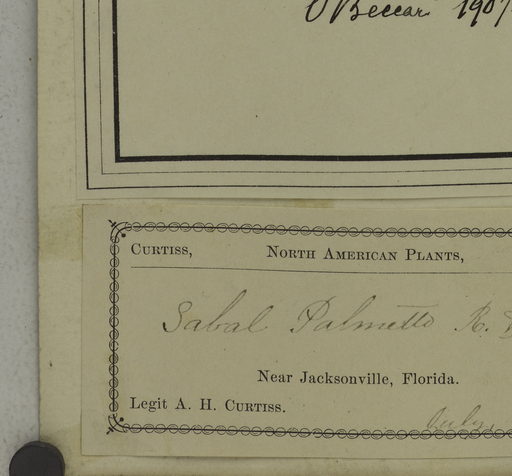 O Beccari 1907
CURTISS, NORTH AMERICAN PLANTS,
Sabal Palmetto R.
Near Jacksonville, Florida.
Legit A. H. CURTISS.
July